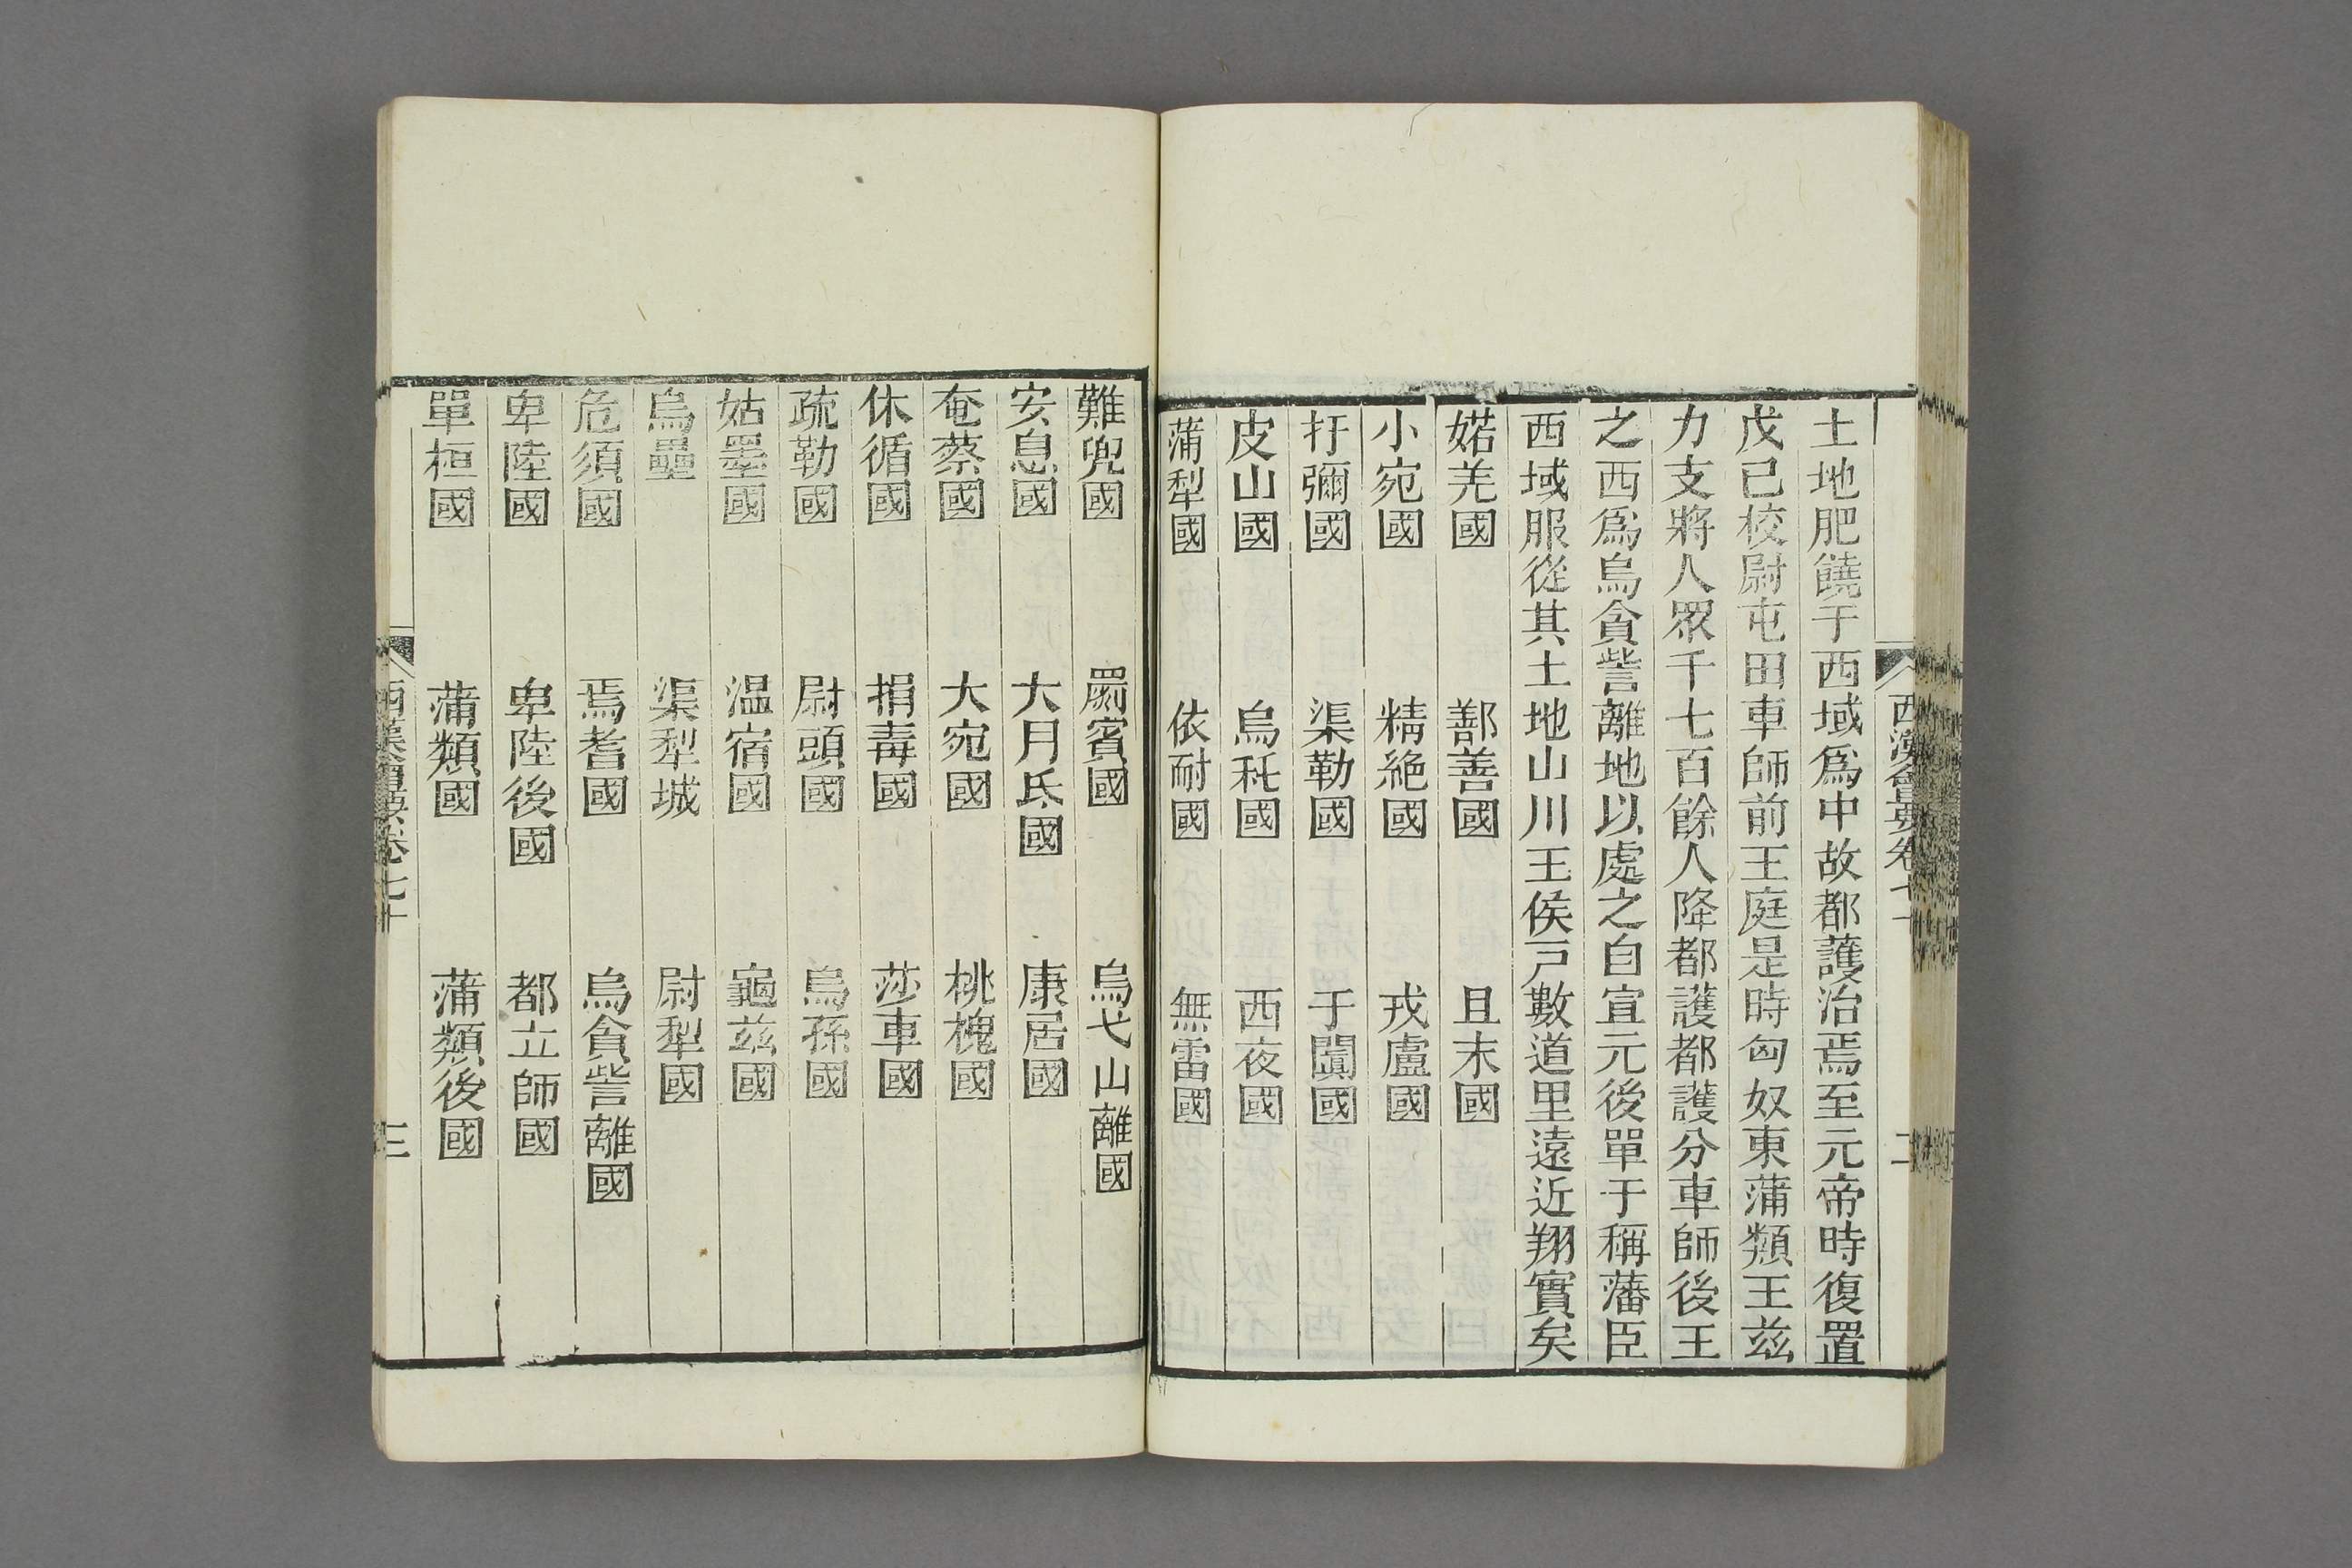 西漢會要卷七十
二
土地肥饒于西域爲中故都護治焉至元帝時復置
戊己校尉屯田車師前王庭是時匈奴東蒲類王茲
力支將人眾千七百餘人降都護都護分車師後王
之西爲烏貪訾離地以處之自宣元後單于稱藩臣
西域服從其土地山川王侯戸數道里遠近翔實矣
婼羌國 鄯善國 且末國
小宛國 精絶國 戎盧國
扜彌國 渠勒國 于闐國
皮山國 烏秅國 西夜國
蒲犁國 依耐國 無雷國
難兜國 罽賓國 烏弋山離國
安息國 大月氐國 康居國
奄蔡國 大宛國 桃槐國
休循國 捐毒國 莎車國
疏勒國 尉頭國 烏孫國
姑墨國 温宿國 龜茲國
烏壘 渠犁城 尉犁國
危須國 焉耆國 烏貪訾離國
卑陸國 卑陸後國 都立師國
單桓國 蒲類國 蒲類後國
西漢會要卷七十
三